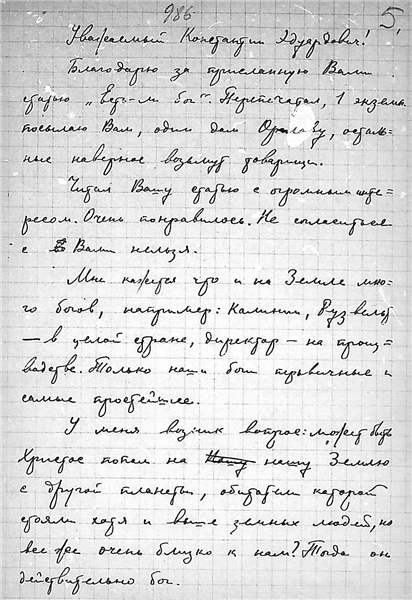 986
5.
Уважаемый Константин Эдуардович!
Благодарю за присланную Вами
статью „Есть-ли бог“. Перепечатал, 1 экземп.
посылаю Вам, один дам Орлову, осталь-
ные наверное возьмут товарищи.
Читал Вашу статью с огромным инте-
ресом. Очень понравилось. Не согласиться
с Вами нельзя.
Мне кажется что и на Земле мно-
го богов, например: Калинин, Рузвельт
— в целой стране, директор — на произ=
водстве. Только наши боги первичные и
самые простейшее.
У меня возник вопрос: может быть
Христос попал на нашу Землю
с другой планеты, обитатели которой
стояли хотя и выше земных людей, но
все же очень близко к нам? Тогда он
действительно бог.